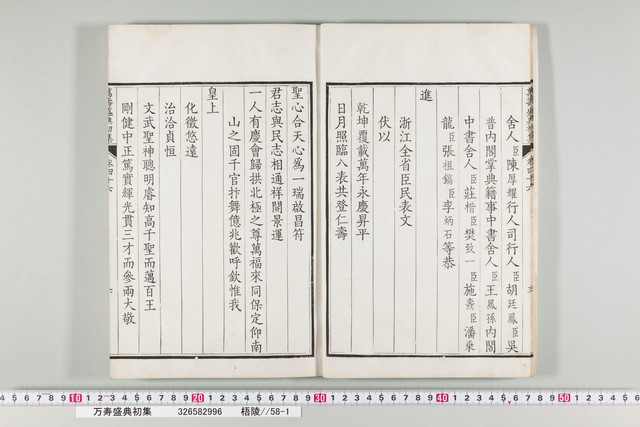 舍人臣陳厚耀行人司行人臣胡廷鳳臣吳
普內閣掌典籍事中書舍人臣王鳳孫內閣
中書舍人臣莊楷臣樊致一臣施熹臣潘秉
龍臣張祖鎬臣李炳石等恭
進
浙江全省臣民表文
伏以
乾坤覆載萬年永慶昇平
日月照臨八表共登仁壽
聖心合天心爲一瑞啟昌符
君志與民志相通祥開景運
一人有慶會歸拱北極之尊萬福來同保定仰南
山之固千官抃舞億兆歡呼欽惟我
皇上
化徵悠遠
治洽貞恒
文武聖神聰明睿知高千聖而邁百王
剛健中正篤實輝光貫三才而參兩大敬
萬壽盛典初集
卷四十六
六
万寿盛典初集 326582996 梧陵//58-1